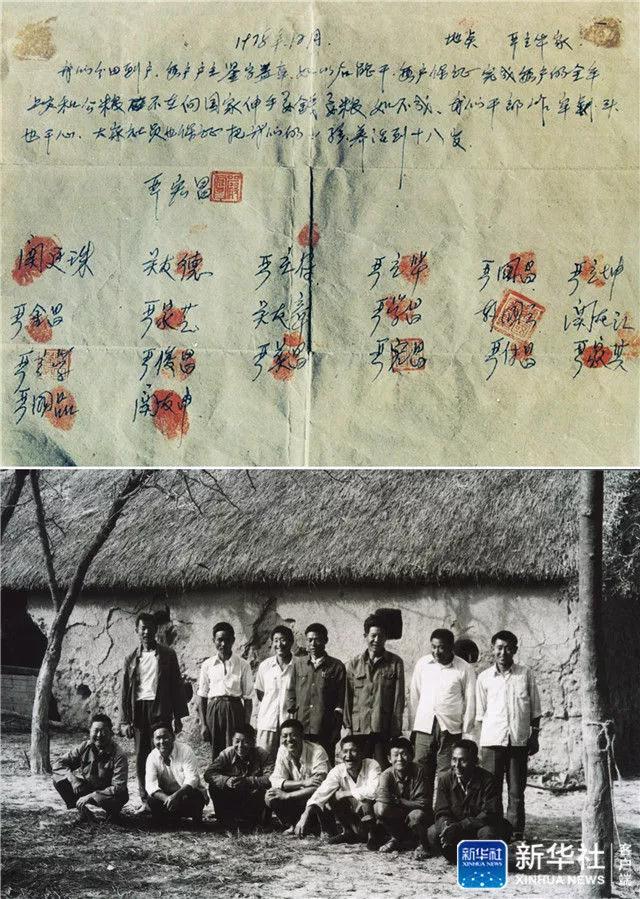 1978年12月. 地点 严立华家.
我们分田到户,每户户主签字盖章,如以后能干,每户保证完成每户的全年
上交和公粮 不在向国家伸手要錢要粮 如不成,我们干部作牢刹头
也干心,大家社员也保证把我们的小孩养活到十八岁.
严宏昌
关廷珠 关友德 严立符 严立华 严国昌 严立坤
严金昌 严家芝 关友章 严学昌 韩国云 关友江
严立学 严俊昌 严美昌 严宏昌 严付昌 严家其
严国品 关友申
新华社 新华社 客户端
XINHUA NEWS XINHUA NEWS